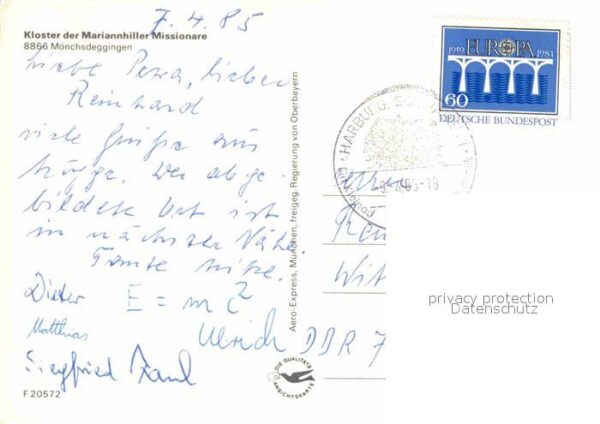 7.4.85
Kloster der Mariannhiller Missionare
8866 Mönchsdeggingen
Liebe Petra, lieber
Reinhard
viele Grüße aus
Der abge-
bildete Ort ist
in nächster Nähe.
Tante
Dieter E = mc²
Matthias
Ulrich
Siegfried Paul
F 20572
Aero-Express, München, freigeg. Regierung von Oberbayern
DIE QUALITÄTS
ANSICHTSKARTE
1959 EUROPA 1984
60
DEUTSCHE BUNDESPOST
HARBURG, SCHWAB 1
Wit
DDR 7
privacy protection
Datenschutz